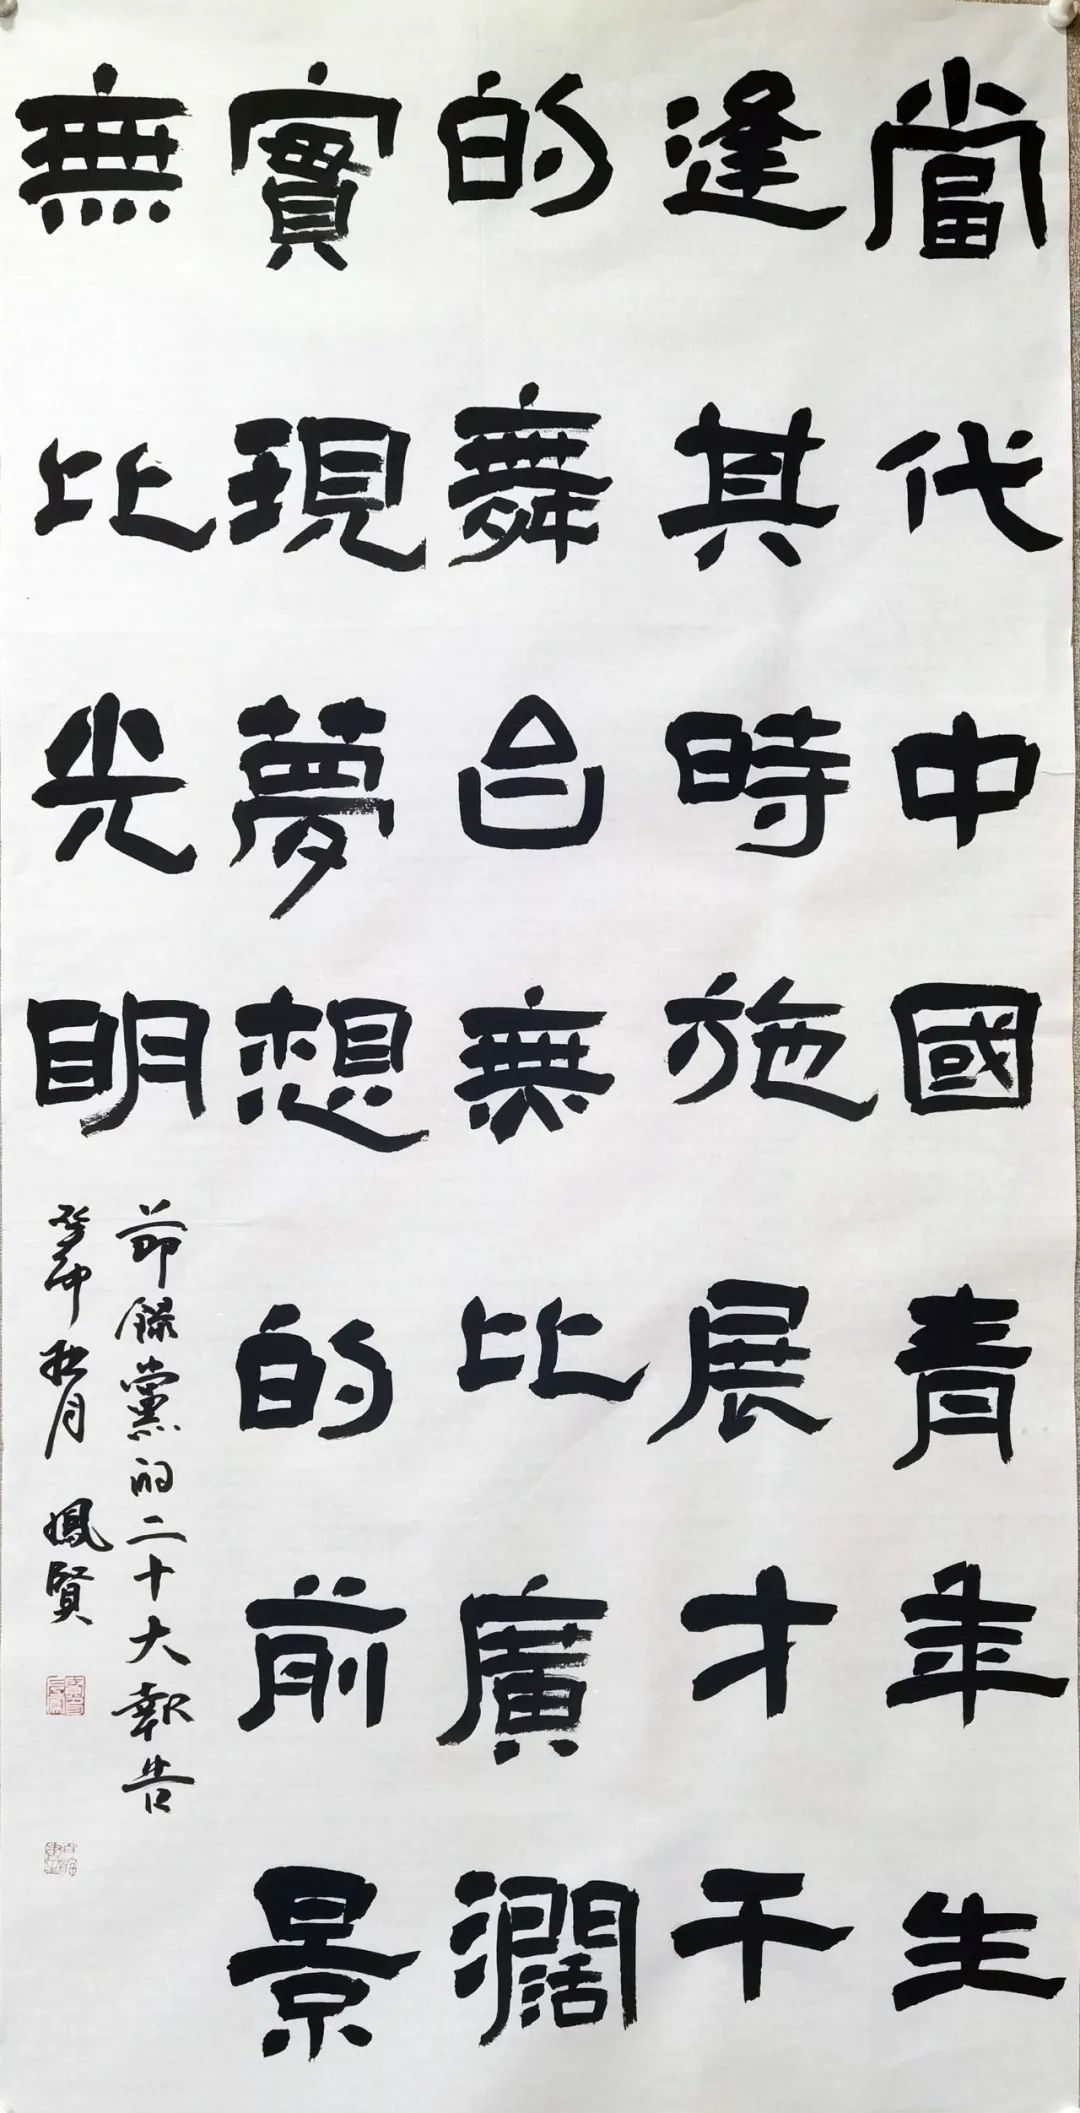 當代中國青年生
逢其時施展才干
的舞台無比廣濶
實現夢想的前景
無比光明
節録黨的二十大報告
癸卯秋月 鳳賢